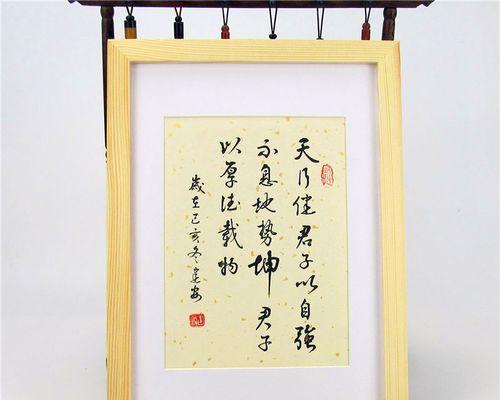 天行健君子以自強
不息地勢坤君子
以厚德載物
歲在己亥冬建安